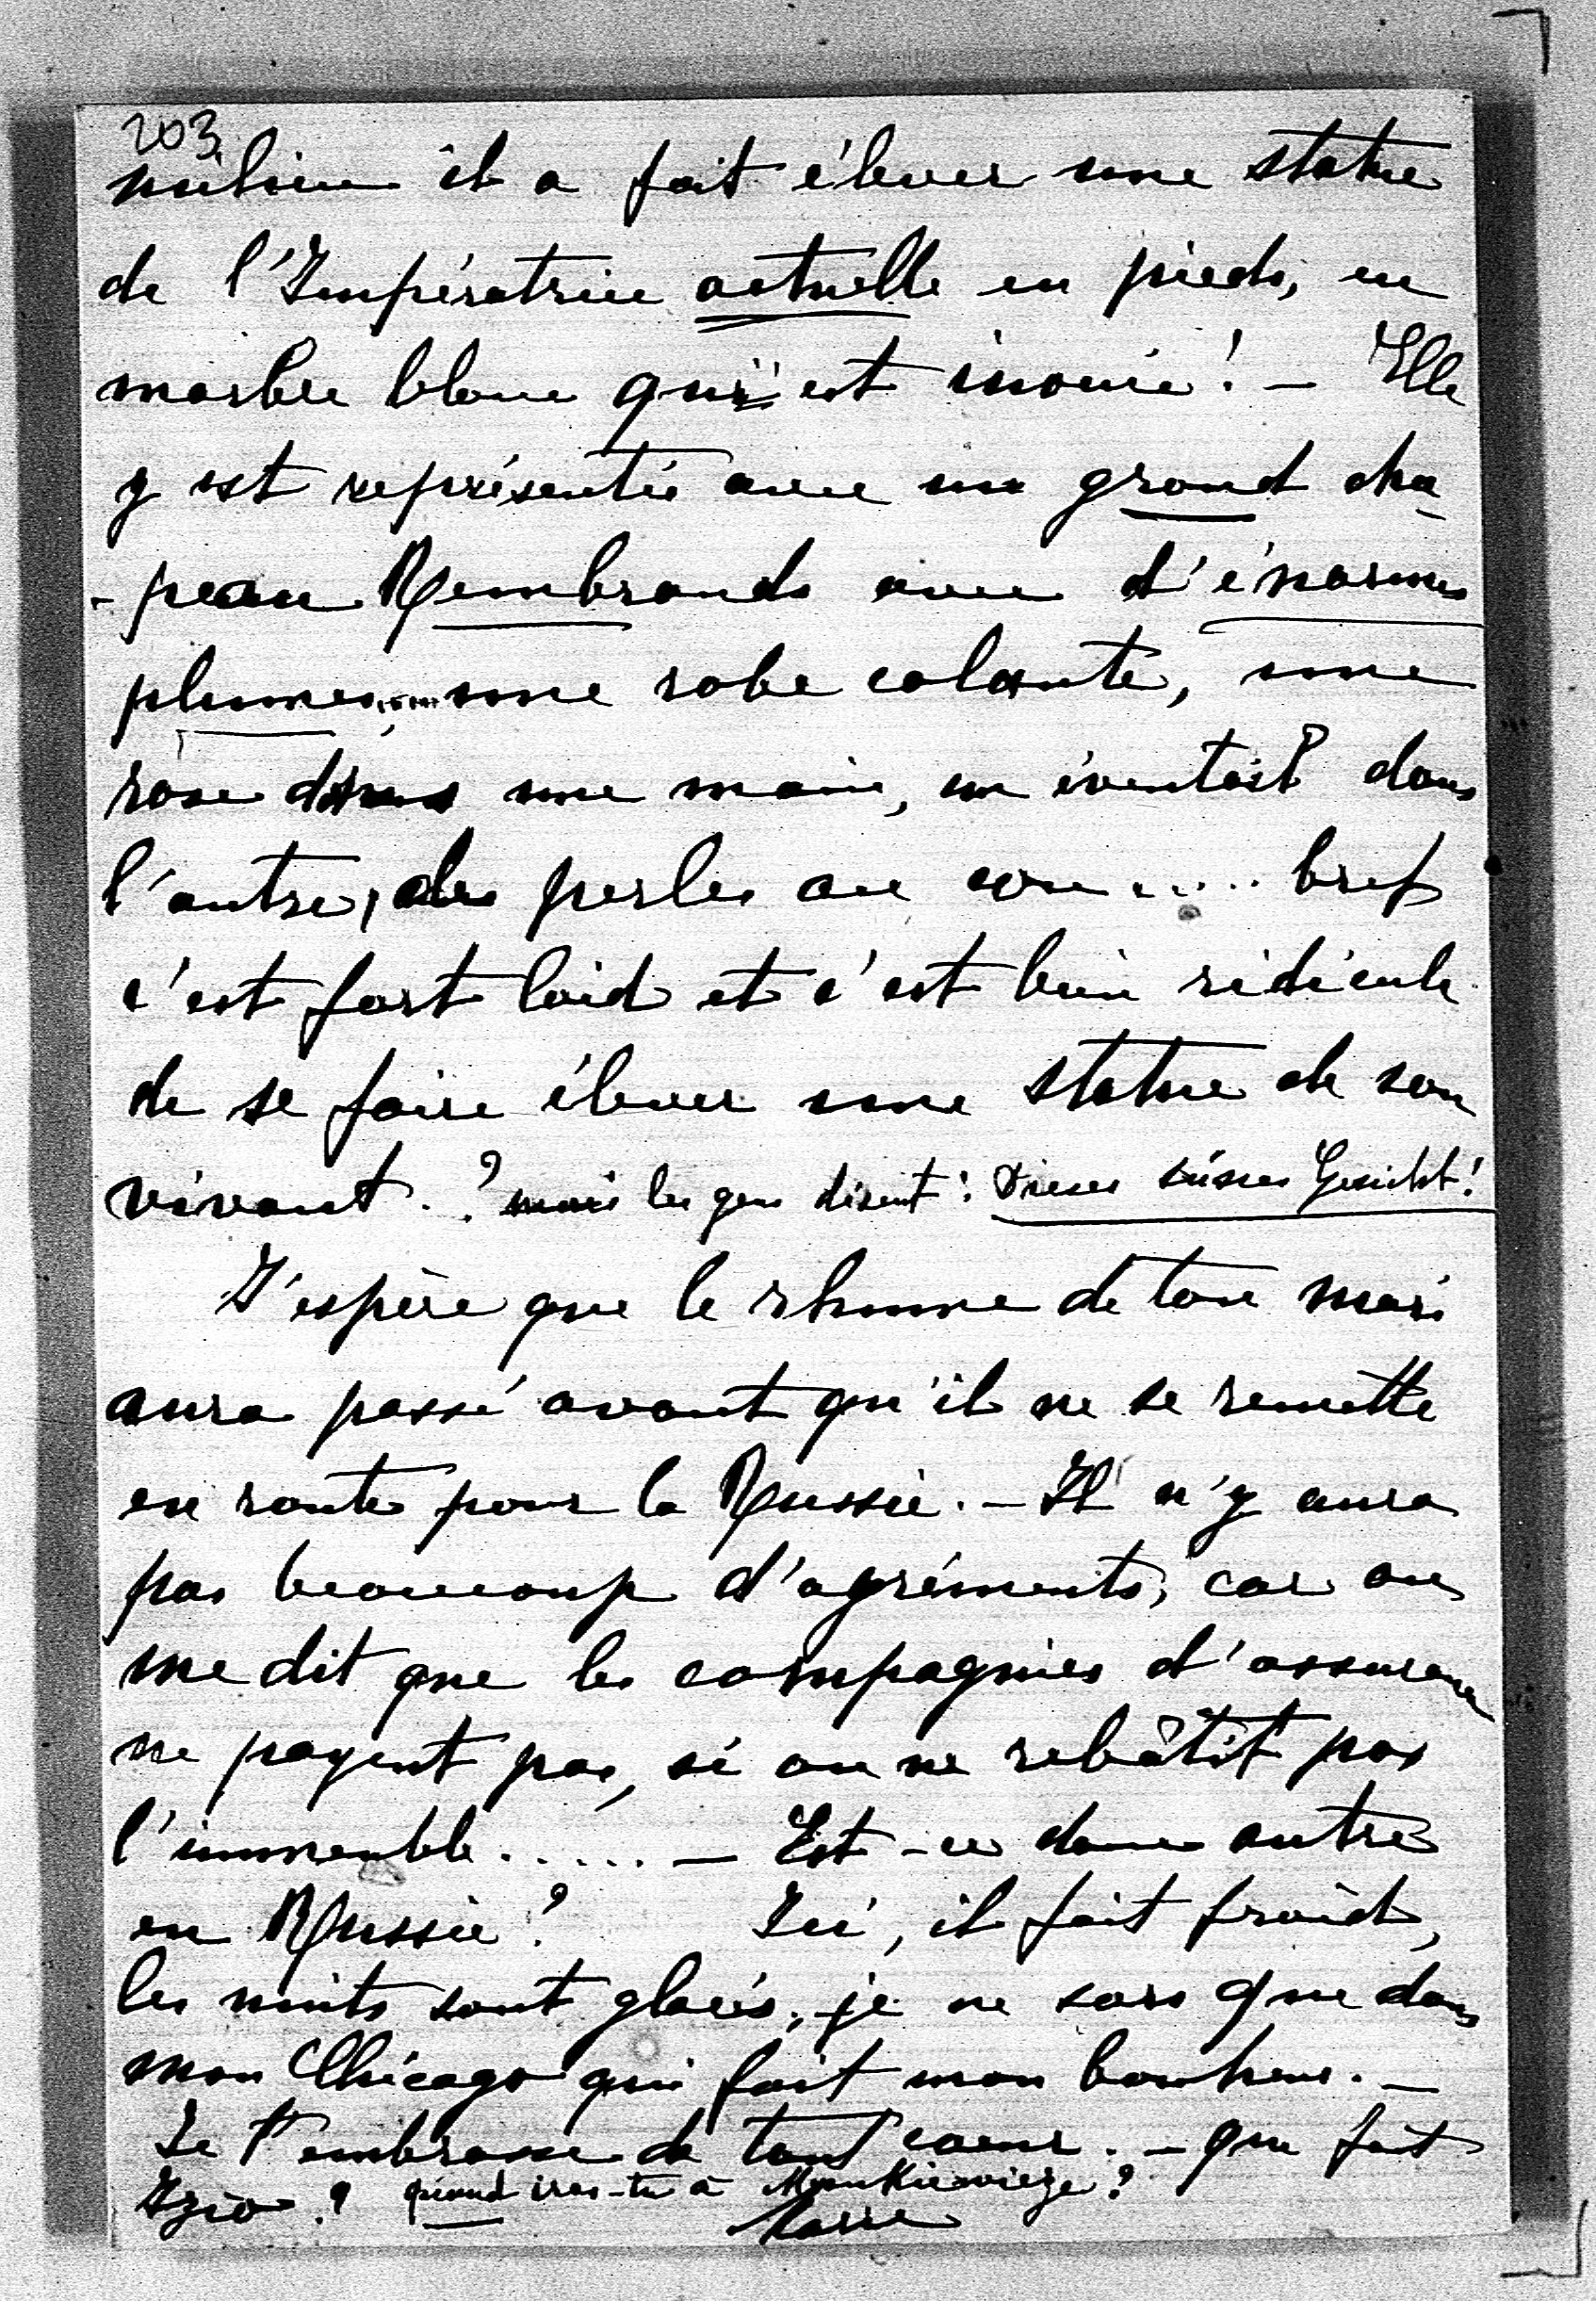 203
milieu il a fait élever une statue
de l'Impératrice actuelle en pieds, en
marbre blanc qui est inouïe! – Elle
y est représentée avec un grand cha
-peau Rembrands avec d'énormes
plumes, .... une robe colante, une
rose dans une main, un éventail dans
l'autre, des perles au cou ..... bref
c'est fort laid et c'est bien ridicule
de se faire élever une statue de son
vivant . ? mais les gens disent : Dieses süsses Gesicht!
J'espère que le rhume de ton mari
aura passé avant qu'il ne se remette
en route pour la Russie. – Il n'y aura
pas beaucoup d'agréments, car on
me dit que les compagnies d'assurance
ne payent pas, si on ne rebâtit pas
l'immeuble ..... – Est-ce donc autre
en Russie? Ici, il fait froid,
les nuits sont glacés, je ne sors que dans
mon Chicago qui fait mon bonheur. –
Je t'embrasse de tout coeur. – que fait
? quand iras-tu à Mankiewicze?